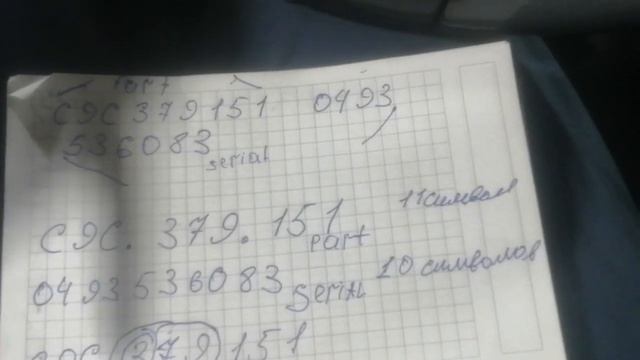 Part
С9С 379151 0493
536083 serial
С9С. 379. 151 Part 11 символ
0493536083 Serial 10 символов
С9С 379 151